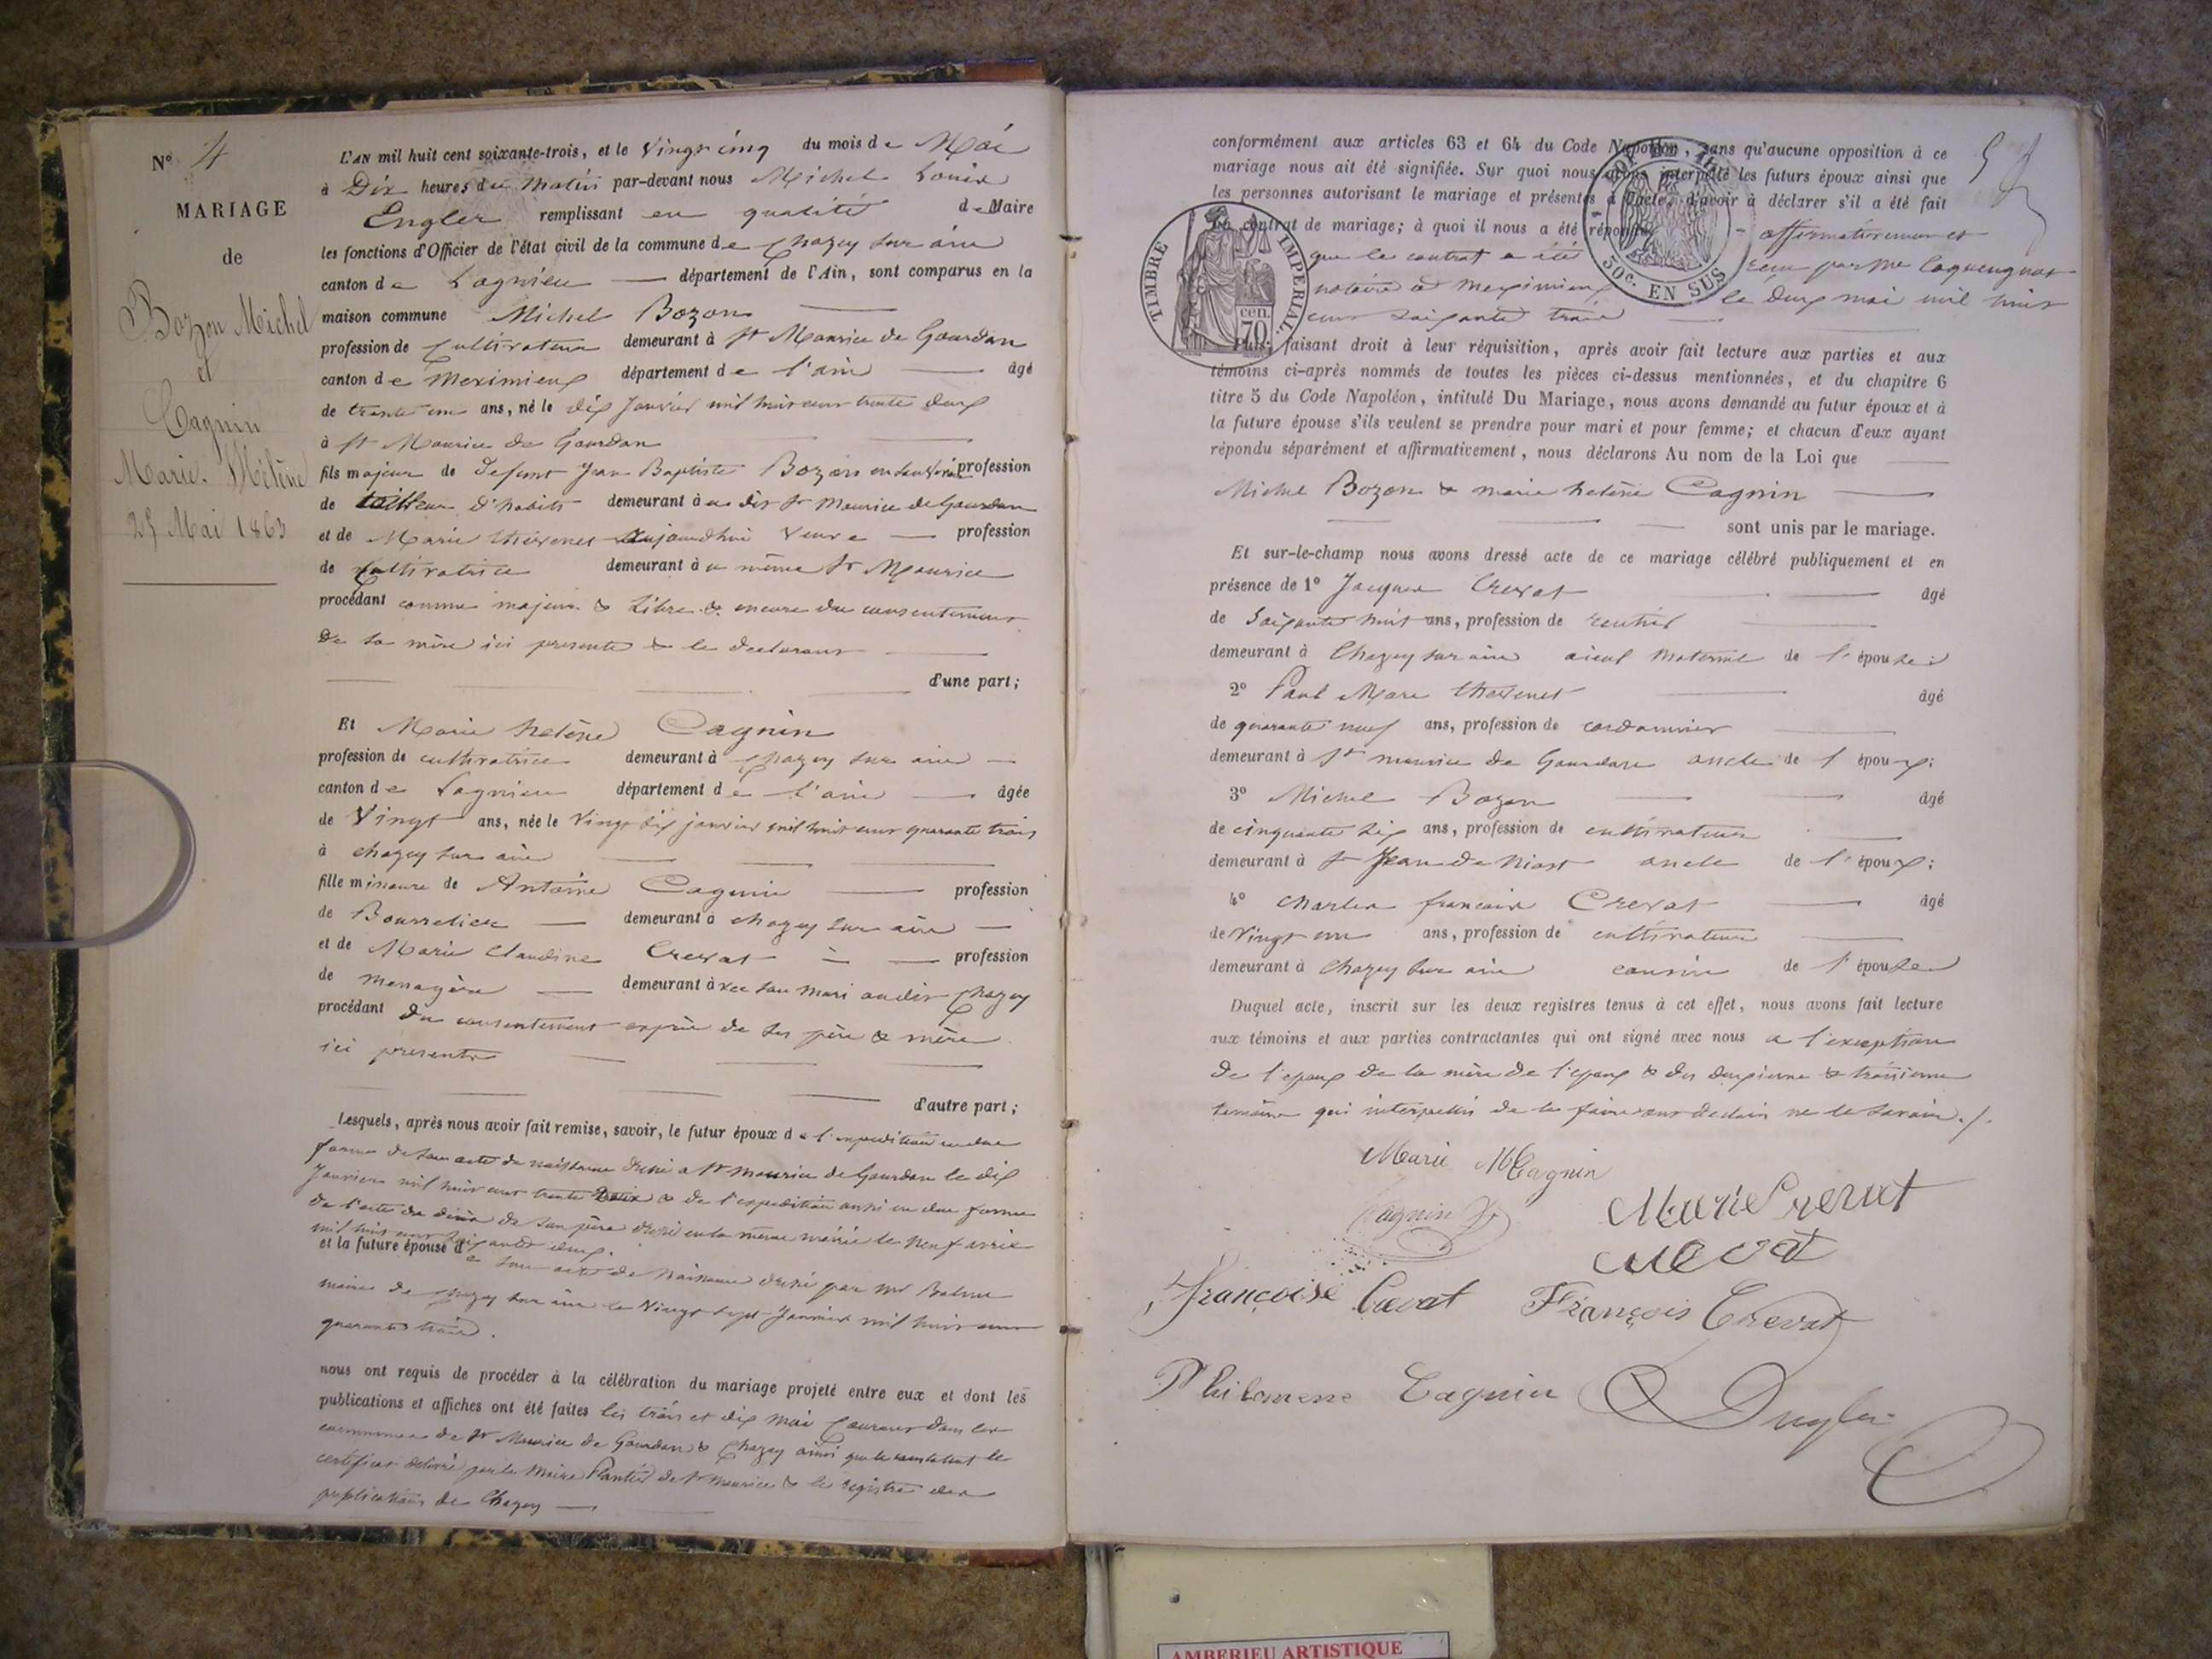 N° 4
MARIAGE
de
Bozon Michel
et
Cagnin
Marie. Hélène
25 Mai 1863
L'AN mil huit cent soixante-trois, et le Vingt cinq du mois de Mai
à Dix heures du Matin par-devant nous Michel Louis
Engler remplissant en qualité de Maire
les fonctions d'Officier de l'état civil de la commune de Chazey sur ain
canton de Lagnieu département de l'Ain, sont comparus en la
maison commune Michel Bozon
profession de Cultivateur demeurant à St Maurice de Gourdan
canton de Meximieux département de l'ain âgé
de trente un ans, né le dix Janvier mil huit cent trente deux
à St Maurice de Gourdan
fils majeur de defunt Jean Baptiste Bozon en son vivant profession
de tailleur d'habits demeurant à u dit St Maurice de Gourdan
et de Marie thévenet aujourdhui veuve profession
de Cultivatrice demeurant à u même St Maurice
procédant comme majeur & Libre & encore du consentement
de sa mère ici presente & le declarant
d'une part;
Et Marie helène Cagnin
profession de cultivatrice demeurant à Chazey sur ain
canton de Lagnieu département de l'ain âgée
de Vingt ans, née le Vingt six janvier mil huit cent quarante trois
à chazey sur ain
fille mineure de Antoine Cagnin profession
de Bourrelier demeurant à chazey sur ain
et de Marie Claudine Crevat profession
de menagère demeurant à vec son mari audit Chazey
procédant du consentement exprès de ses père & mère
ici presents
d'autre part;
Lesquels, après nous avoir fait remise, savoir, le futur époux de l'expedition en due
forme de son acte de naissance dressé a St maurice de Gourdan le dix
Janvier mil huit cent trente deux & de l'expedition aussi en due forme
de l'acte de décès de son père dressé en la même mairie le neuf avril
mil huit cent soixante deux.
et la future épouse de son acte de naissance dressé par mr Balme
maire de Chazey sur ain le Vingt sept Janvier mil huit cent
quarante trois.
nous ont requis de procéder à la célébration du mariage projeté entre eux et dont les
publications et affiches ont été faites les trois et dix mai Courant dans les
communes de St Maurice de Gourdan & Chazey ainsi que le constatent le
certificat délivré par le Maire Plantier de St Maurice & le registre des
publications de Chazey
conformément aux articles 63 et 64 du Code Napoléon, sans qu'aucune opposition à ce
mariage nous ait été signifiée. Sur quoi nous avons interpellé les futurs époux ainsi que
les personnes autorisant le mariage et présentes à l'acte, d'avoir à déclarer s'il a été fait
un contrat de mariage; à quoi il nous a été répondu affirmativement
que le contrat a été recu par Me
notaire à Meximieux le deux mai mil huit
cent soixante trois
TIMBRE IMPERIAL.
cen.
70
50c. EN SUS
Puis, faisant droit à leur réquisition, après avoir fait lecture aux parties et aux
témoins ci-après nommés de toutes les pièces ci-dessus mentionnées, et du chapitre 6
titre 5 du Code Napoléon, intitulé Du Mariage, nous avons demandé au futur époux et à
la future épouse s'ils veulent se prendre pour mari et pour femme; et chacun d'eux ayant
répondu séparément et affirmativement, nous déclarons Au nom de la Loi que
Michel Bozon & marie helène Cagnin
sont unis par le mariage.
Et sur-le-champ nous avons dressé acte de ce mariage célébré publiquement et en
présence de 1° Jacques Crevat âgé
de soixante huit ans, profession de rentier
demeurant à Chazey sur ain aieul maternel de l'épouse;
2° Paul Marc thevenet âgé
de quarante neuf ans, profession de cordonnier
demeurant à St maurice de Gourdan oncle de l'époux;
3° Michel Bozon âgé
de cinquante six ans, profession de cultivateur
demeurant à St Jean de Niost oncle de l'époux;
4° Charles francois Crevat âgé
de Vingt un ans, profession de cultivateur
demeurant à Chazey sur ain cousin de l'épouse
Duquel acte, inscrit sur les deux registres tenus à cet effet, nous avons fait lecture
aux témoins et aux parties contractantes qui ont signé avec nous a l'exception
de l'epoux de la mère de l'epoux & des deuxieme & troisieme
temoins qui interpellés de le faire ont declaré ne le savoir./.
Marie H Cagnin
Cagnin
Marie Crevat
Crevat
Françoise Crevat
François Crevat
Philomene Cagnin
Engler
AMBERIEU ARTISTIQUE